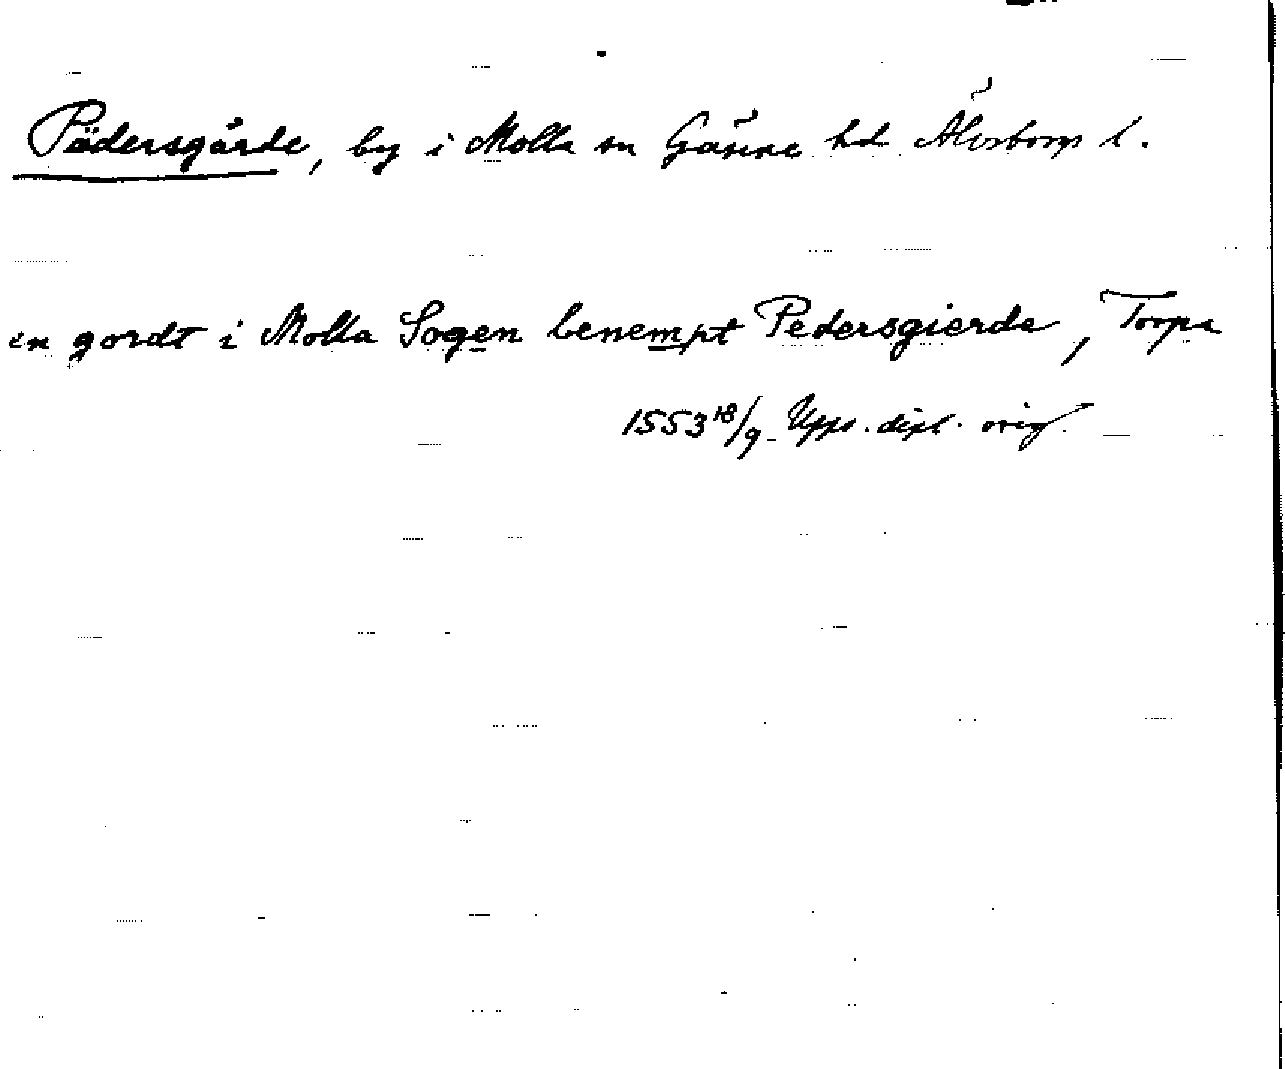 Pädersgärde, by i Molla sn Gäsene hd Älvsborgs l.
en gordt i Molla Sogen benempt Pedersgierde, Torpa
1553 18/9. Upps. dipl. orig.